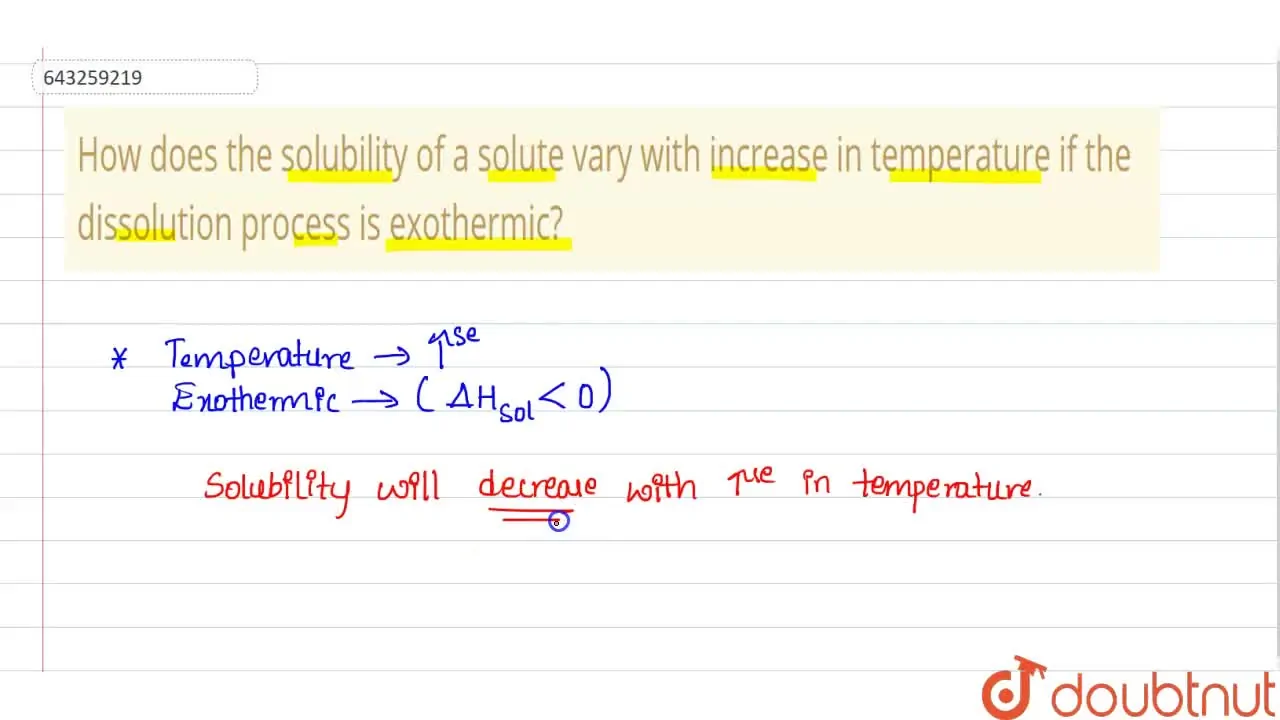 643259219
How does the solubility of a solute vary with increase in temperature if the
dissolution process is exothermic?
* Temperature → ↑se
Exothermic → ( ΔHsol < 0 )
Solubility will decrease with ↑se in temperature.
doubtnut